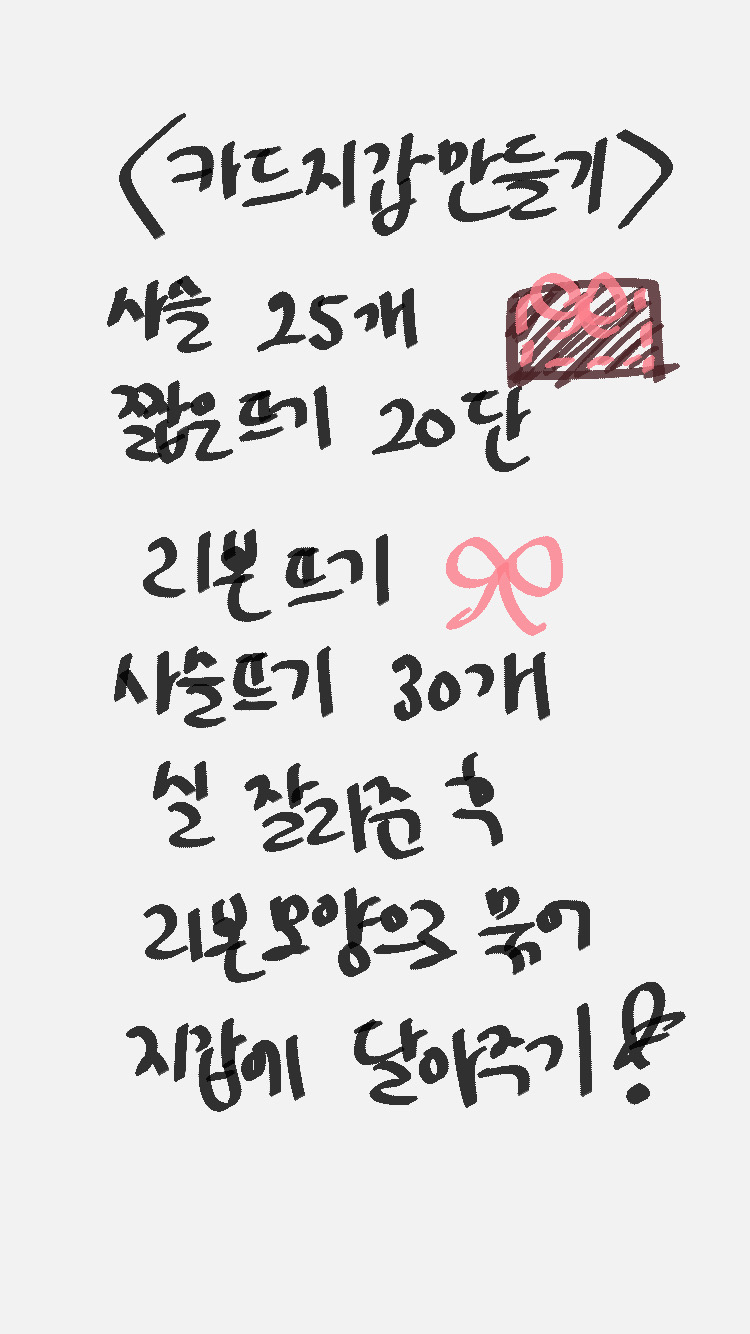 <카드지갑만들기>
사슬 25개
짧은뜨기 20단
리본뜨기
사슬뜨기 30개
실 잘라준 후
리본모양으로 묶어
지갑에 달아주기!